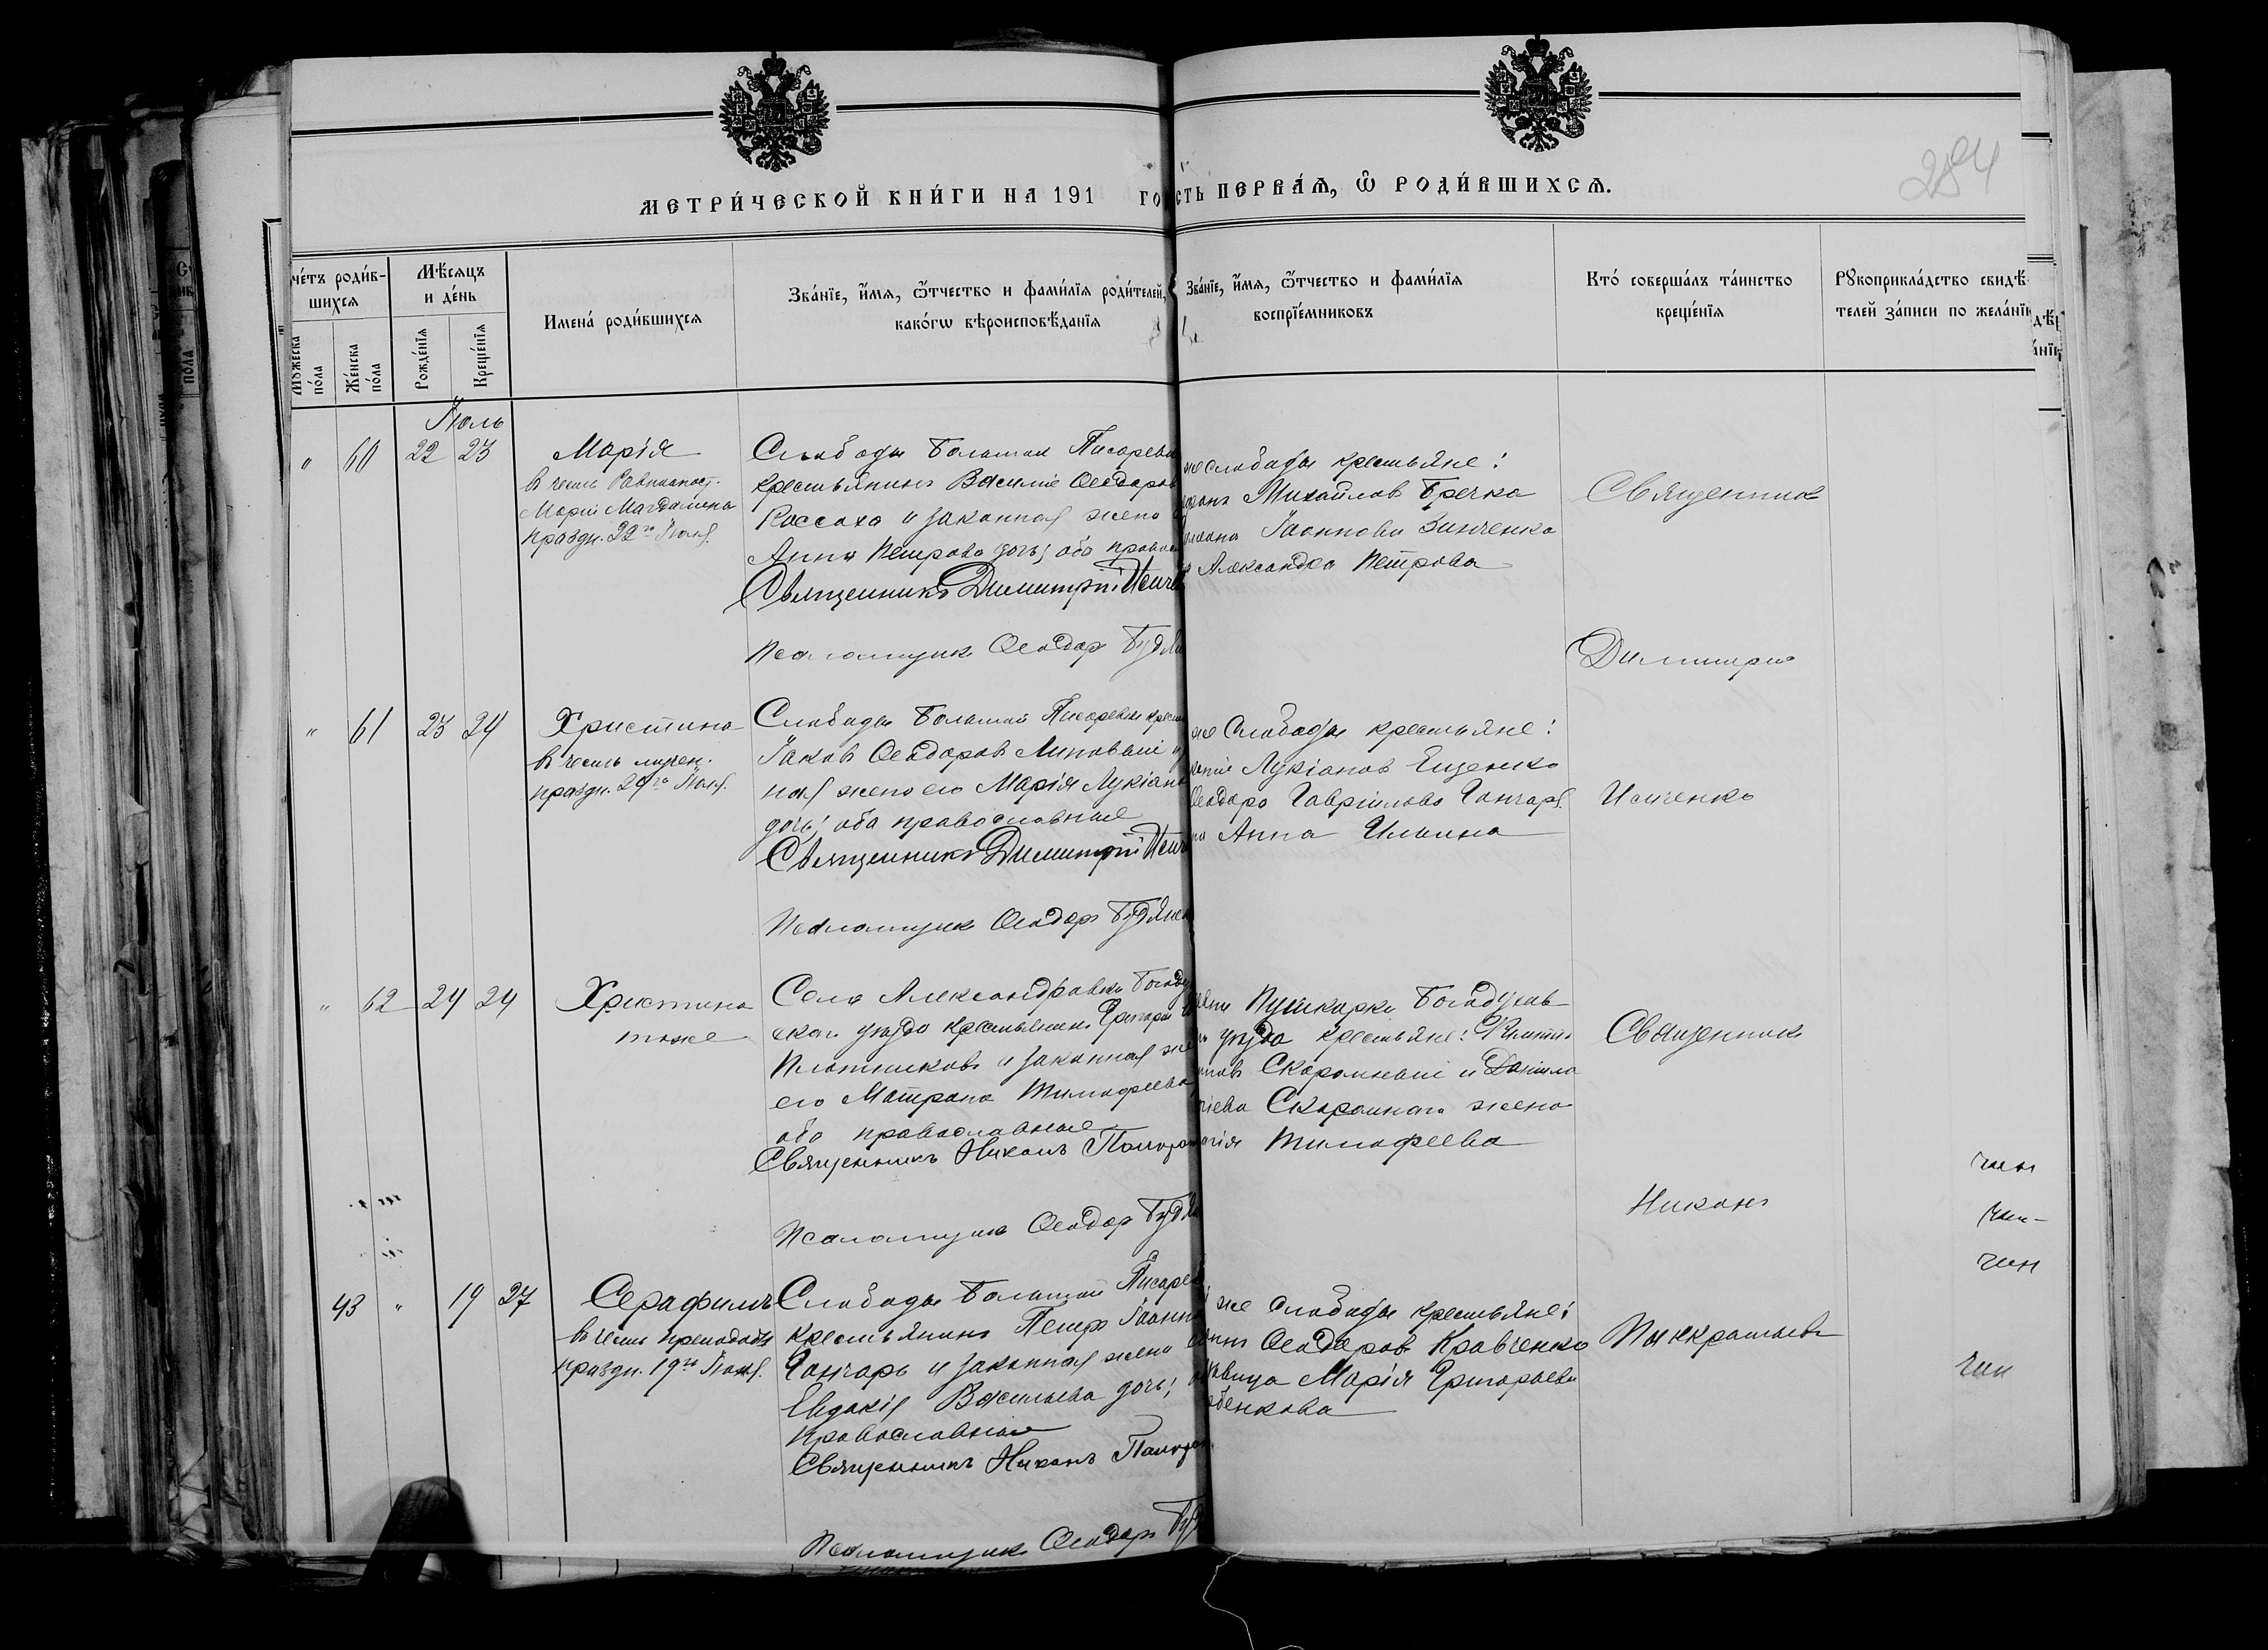 284
МЕТРИ́ЧЕСКОЙ КНИ́ГИ НА 191 ГО
СТЬ ПЕРВА́Ѧ, Ѿ РОДИ́ВШИХСѦ.
че́тъ роди́в-
шихсѧ
Мꙋ́жеска
по́ла
Же́нска
по́ла
Мѣ́сѧцъ
и де́нь
Рожде́нїѧ
Креще́нїѧ
Имена́ роди́вшихсѧ
Зва́нїе, и́мѧ, ѻ́тчество и фами́лїѧ роди́телей,
како́гѡ вѣроисповѣ́данїѧ
Зва́нїе, и́мѧ, ѻ́тчество и фами́лїѧ
воспрїе́мниковъ
Кто́ соверша́лъ та́инство
креще́нїѧ
Рꙋкоприкла́дство свидѣ́
телей за́писи по жела́нїю
Іюль
" 60 22 23
Марія
въ честь Равноапост.
Маріи Магдалина
праздн. 22го Іюля
Слободы Большой Писаревки
крестьянинъ Василій Ѳеодоров
Коссахо и законная жена
Анна Петрова дочь; оба правос
Священникъ Димитрій Исиче
Псаломщикъ Ѳеодоръ Будян
же слободы крестьяне:
Михайловъ Гречка
Іоаннова Зинченко
Александра Петрова
Священникъ
Димитрій
Исиченко
" 61 23 24
Христина
въ честь мучен.
праздн. 24го Іюля
Слободы Большой Писаревки крест
Іаковъ Ѳеодоровъ Липовый и
ная жена его Марія Лукіано
дочь; оба православные
Священникъ Димитрій Исич
Псаломщикъ Ѳеодоръ Будянск
же Слободы крестьяне:
Лукіановъ Ещенко
Ѳеодора Гавріилова Гончаря
Анна Ильина
" 62 24 24
Христина
тоже
Села Александровки Богоду
скаго уѣзда крестьянинъ Григорій
Плотниковъ и законная же
его Матрона Тимофеева
оба православные
Священникъ Никонъ Панкра
Псаломщикъ Ѳеодоръ Будя
Пушкарки Богодухов
уѣзда крестьяне:
Скоромный и Даніила
Скоромнаго жена
Тимофеева
Священникъ
Никонъ
Панкратьевъ
43 " 19 27
Серафимъ
въ честь преподобн
праздн. 19го Іюля
Слободы Большой Писарев
крестьянинъ Петръ Іоанн
Гончарь и законная жена
Евдокія Васильева дочь;
православные
Священникъ Никонъ Панкра
Псаломщикъ Ѳеодоръ Буд
же слободы крестьяне:
Ѳеодоровъ Кравченко
дѣвица Марія Григорьева
бенкова